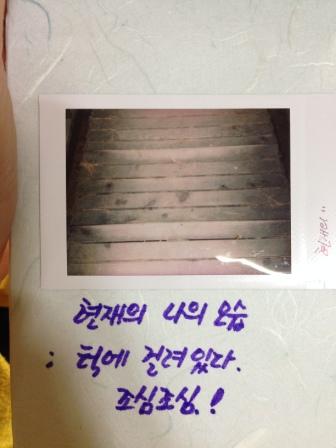 현재의 나의 모습
: 턱에 걸려있다.
조심조심.!